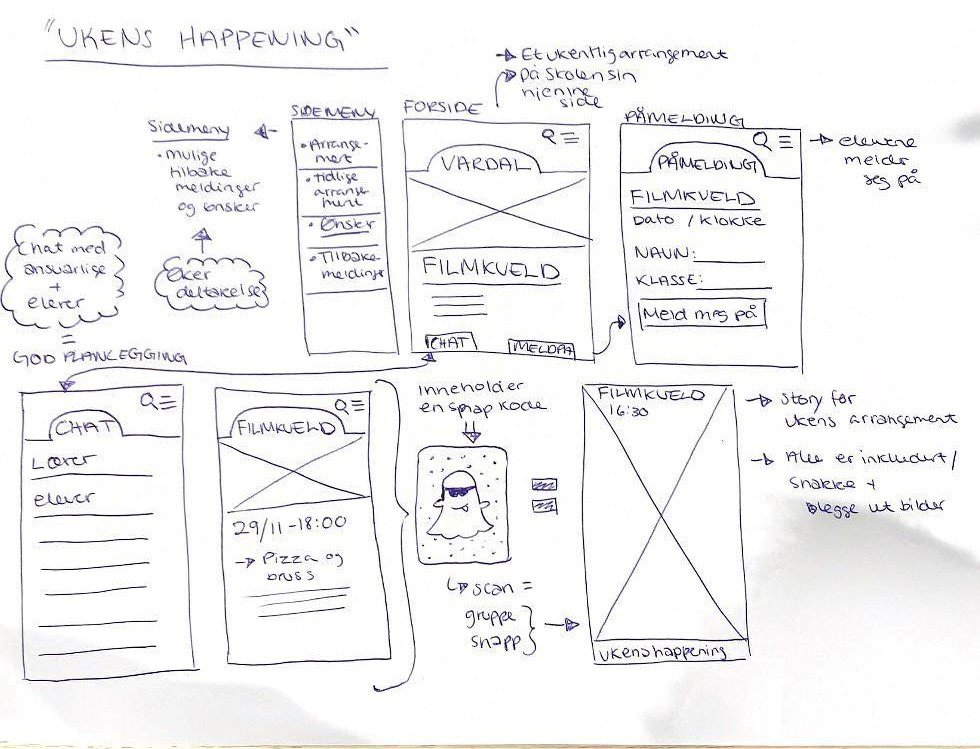 "UKENS HAPPENING"
→ Et ukentlig arrangement
→ på skolen sin
hjemme
side
SIDEMENY
FORSIDE
PÅMELDING
Sidemeny
• mulige
tilbake
meldinger
og ønsker
• Arrange-
ment
• tidlige
arrange
ment
• Ønsker
• Tilbake
meldinge
VARDAL
FILMKVELD
CHAT
MELD PÅ
PÅMELDING
FILMKVELD
Dato / Klokke
NAVN:
KLASSE:
Meld meg på
→ elevene
melder
seg på
Chat med
ansvarlige
+
elever
=
GOD PLANLEGGING
Øker
deltakelse
CHAT
Lærer
elever
FILMKVELD
29/11 - 18:00
→ Pizza og
bruss
Inneholder
en snap kode
↳ scan =
gruppe
snapp
FILMKVELD
16:30
ukenshappening
→ Story for
ukens arrangement
→ Alle er inkludert /
snakke +
legge ut bilder